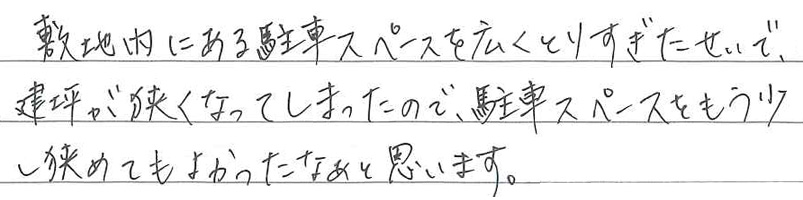 敷地内にある駐車スペースを広くとりすぎたせいで、
建坪が狭くなってしまったので、駐車スペースをもう少
し狭めてもよかったなあと思います。